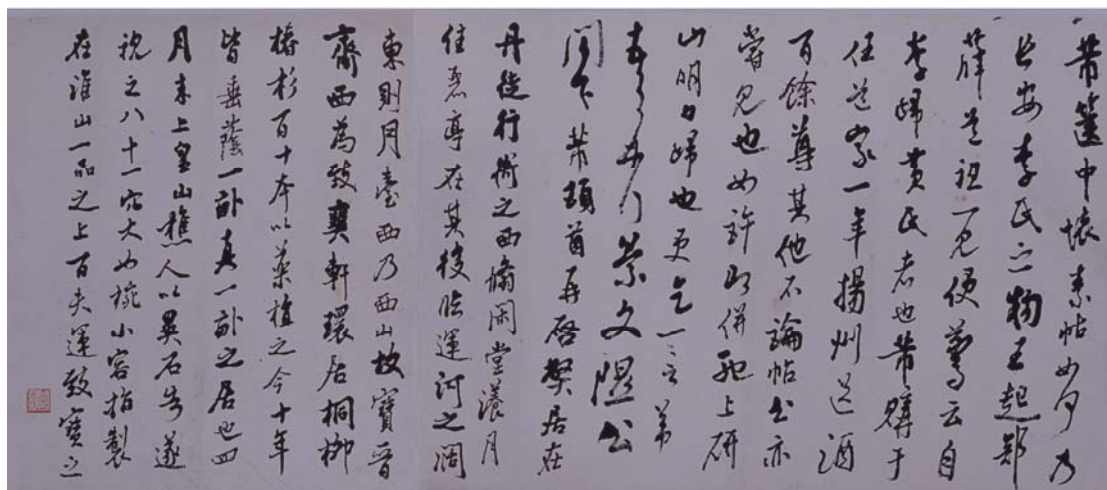 芾篋中懷素帖如何乃
長安李氏之物王起部
薛道祖一見便驚云自
李歸黃氏者也芾購于
任道家一年揚州送酒
百餘尊其他不論帖公亦
嘗見也如許即併馳上研
山明日歸也更乞一言芾
頓首再拜景文隰公
閤下芾頓首再啟弊居在
丹徒行衙之西翛閒堂漾月
佳麗亭在其後臨運河之闊
東則月臺西乃西山故寶晉
齋西為致爽軒環居桐柳
椿杉百十本以藥植之今十年
皆垂蔭一畝真一畝之居也四
月末上皇山樵人以異石告遂
視之八十一穴大如椀小容指製
在淮山一品之上百夫運致寶之